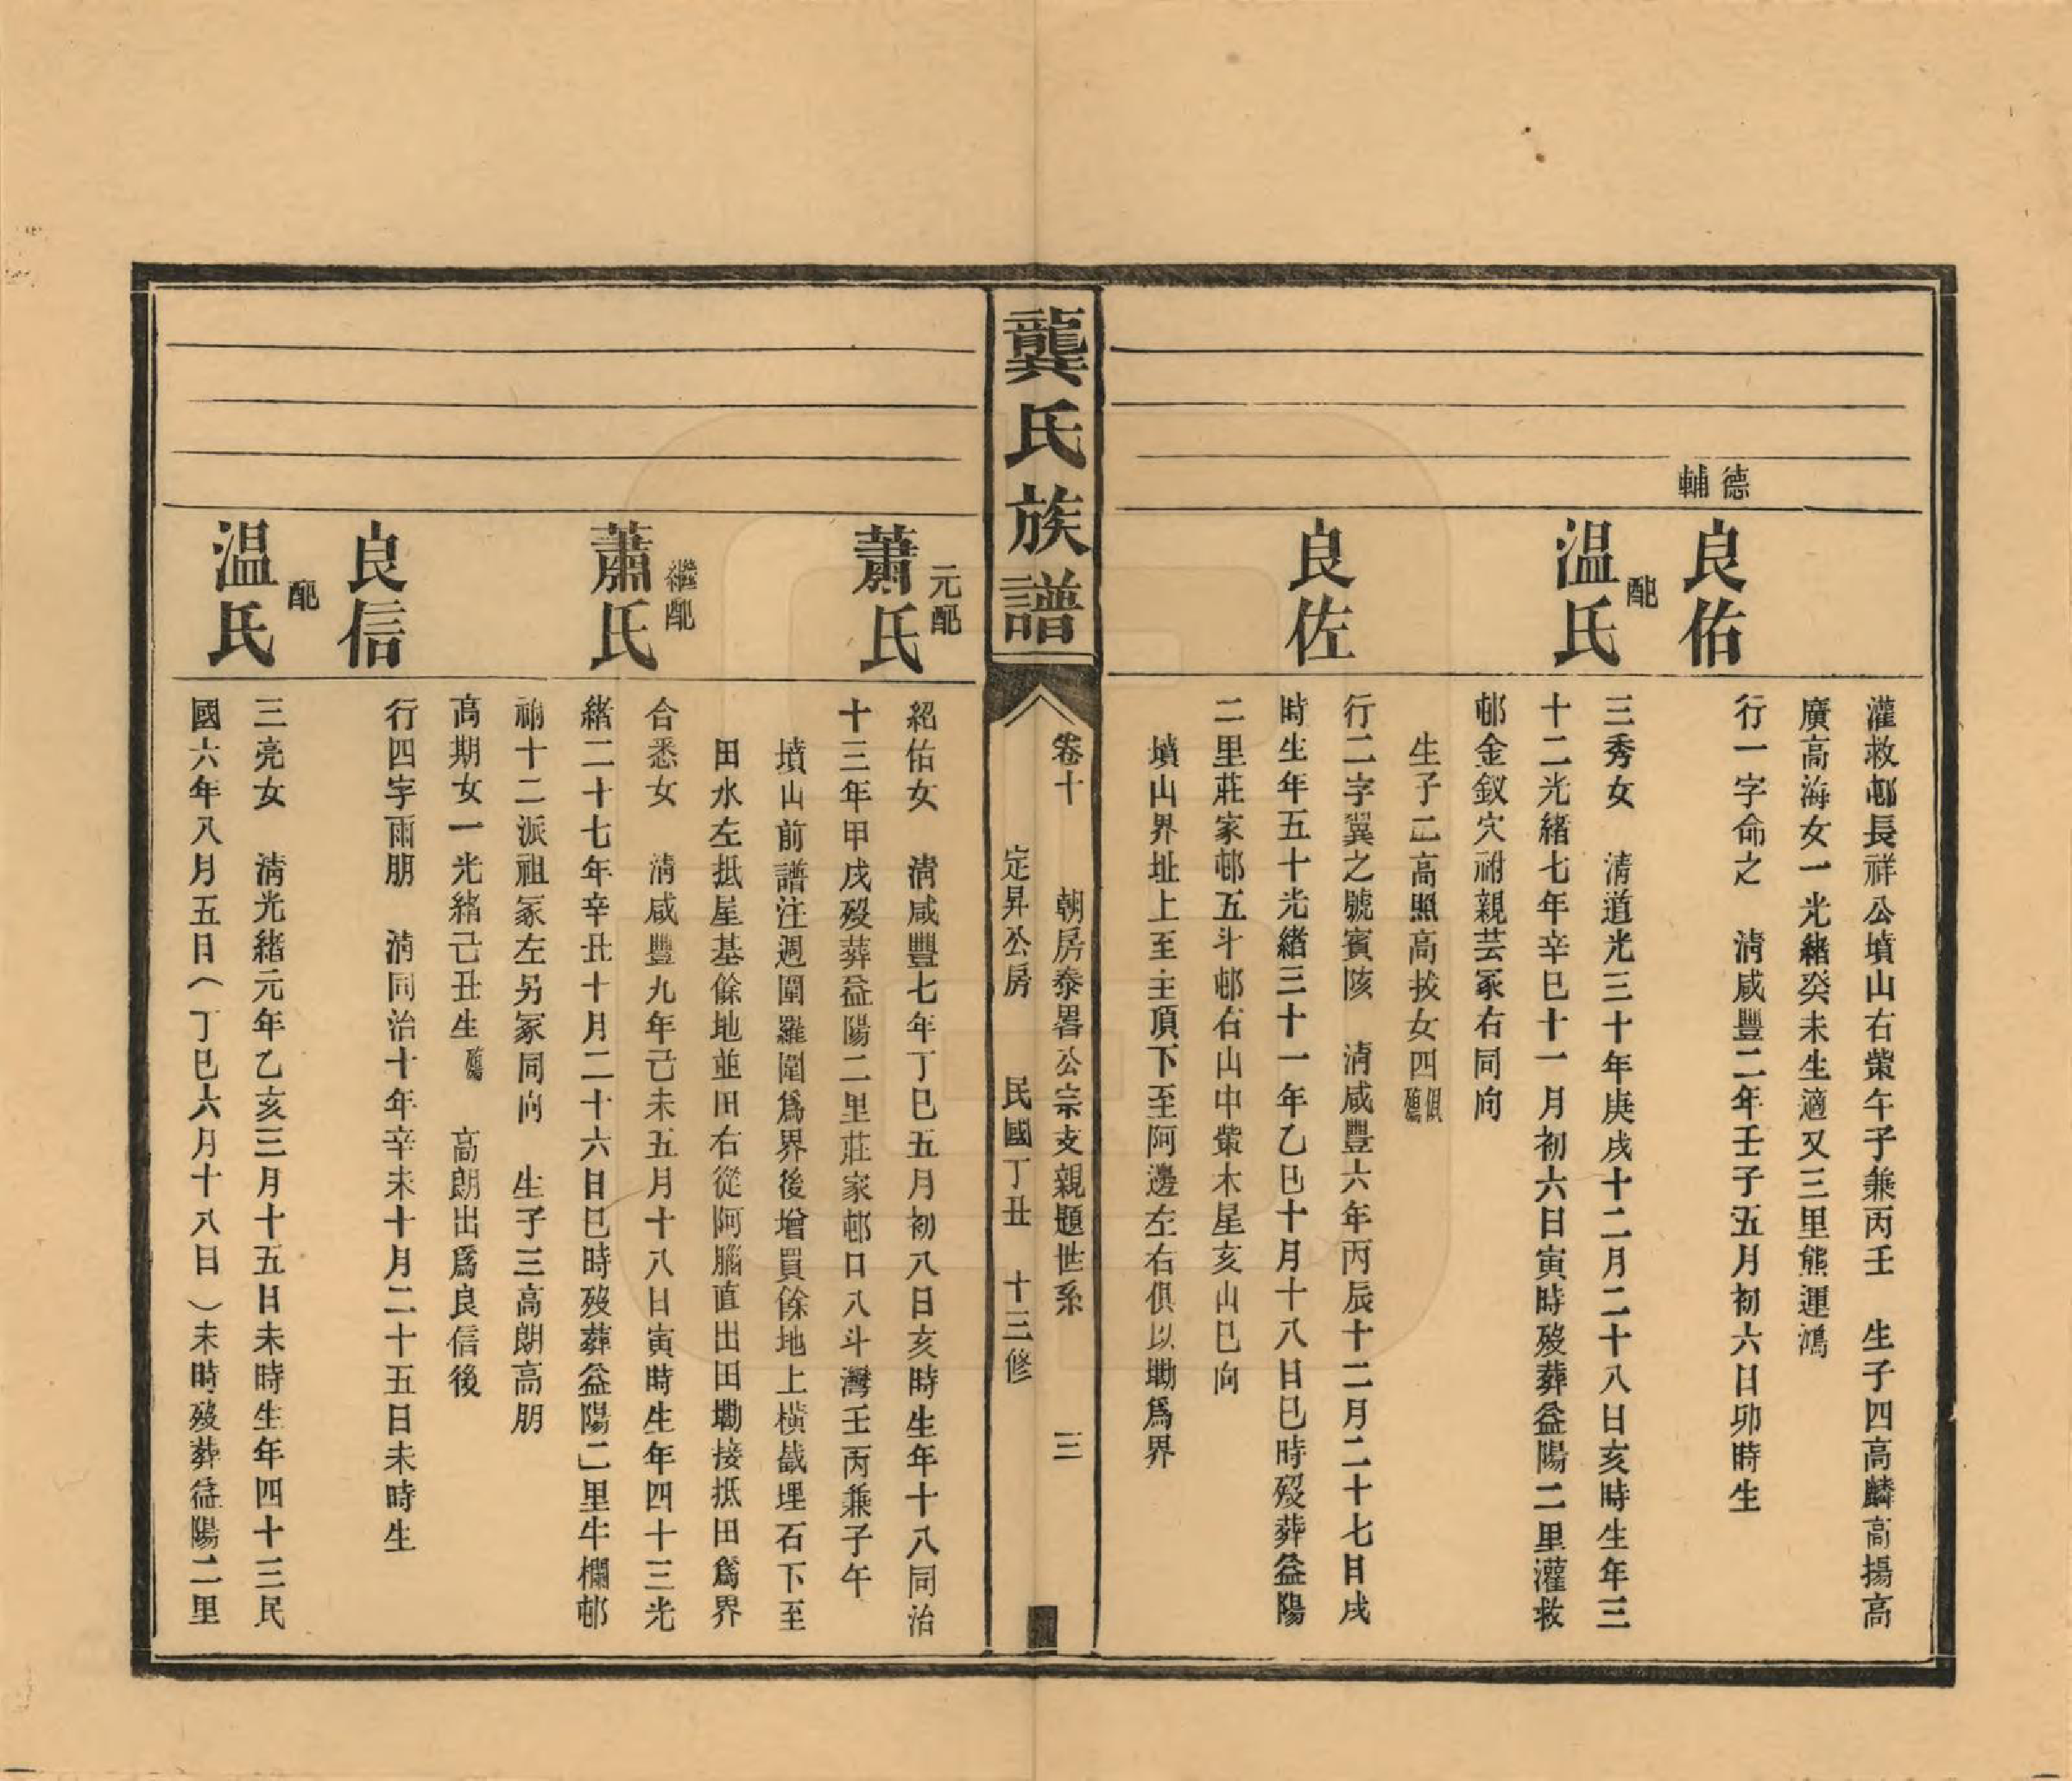 灌救邨長祥公墳山右塋午子兼丙壬　生子四高麟高揚高
廣高海女一光緒癸未生適又三里熊運鴻
德輔
良佑
行一字命之　淸咸豐二年壬子五月初六日卯時生
配
温氏
三秀女　淸道光三十年庚戌十二月二十八日亥時生年三
十二光緒七年辛巳十一月初六日寅時殁葬益陽二里灌救
邨金釵穴祔親芸冢右同向
生子二高照高拔女四俱殤
良佐
行二字翼之號賓陔　淸咸豐六年丙辰十二月二十七日戌
時生年五十光緒三十一年乙巳十月十八日巳時殁葬益陽
二里莊家邨五斗邨右山中塋木星亥山巳向
墳山界址上至主頂下至阿邊左右俱以墈爲界
龔氏族譜
卷十　朝房泰畧公宗支親題世系　三
定昇公房　民國丁丑　十三修
元配
蕭氏
紹佑女　淸咸豐七年丁巳五月初八日亥時生年十八同治
十三年甲戌殁葬益陽二里莊家邨口八斗灣壬丙兼子午
墳山前譜注週圍羅圍爲界後增買餘地上橫截埋石下至
田水左抵屋基餘地並田右從阿腦直出田墈接抵田爲界
繼配
蕭氏
合悉女　淸咸豐九年己未五月十八日寅時生年四十三光
緒二十七年辛丑十月二十六日巳時殁葬益陽二里牛欄邨
祔十二派祖冢左另冢同向　生子三高朗高朋
高期女一光緒己丑生殤　高朗出爲良信後
良信
行四字雨朋　淸同治十年辛未十月二十五日未時生
配
温氏
三亮女　淸光緒元年乙亥三月十五日未時生年四十三民
國六年八月五日（丁巳六月十八日）未時殁葬益陽二里